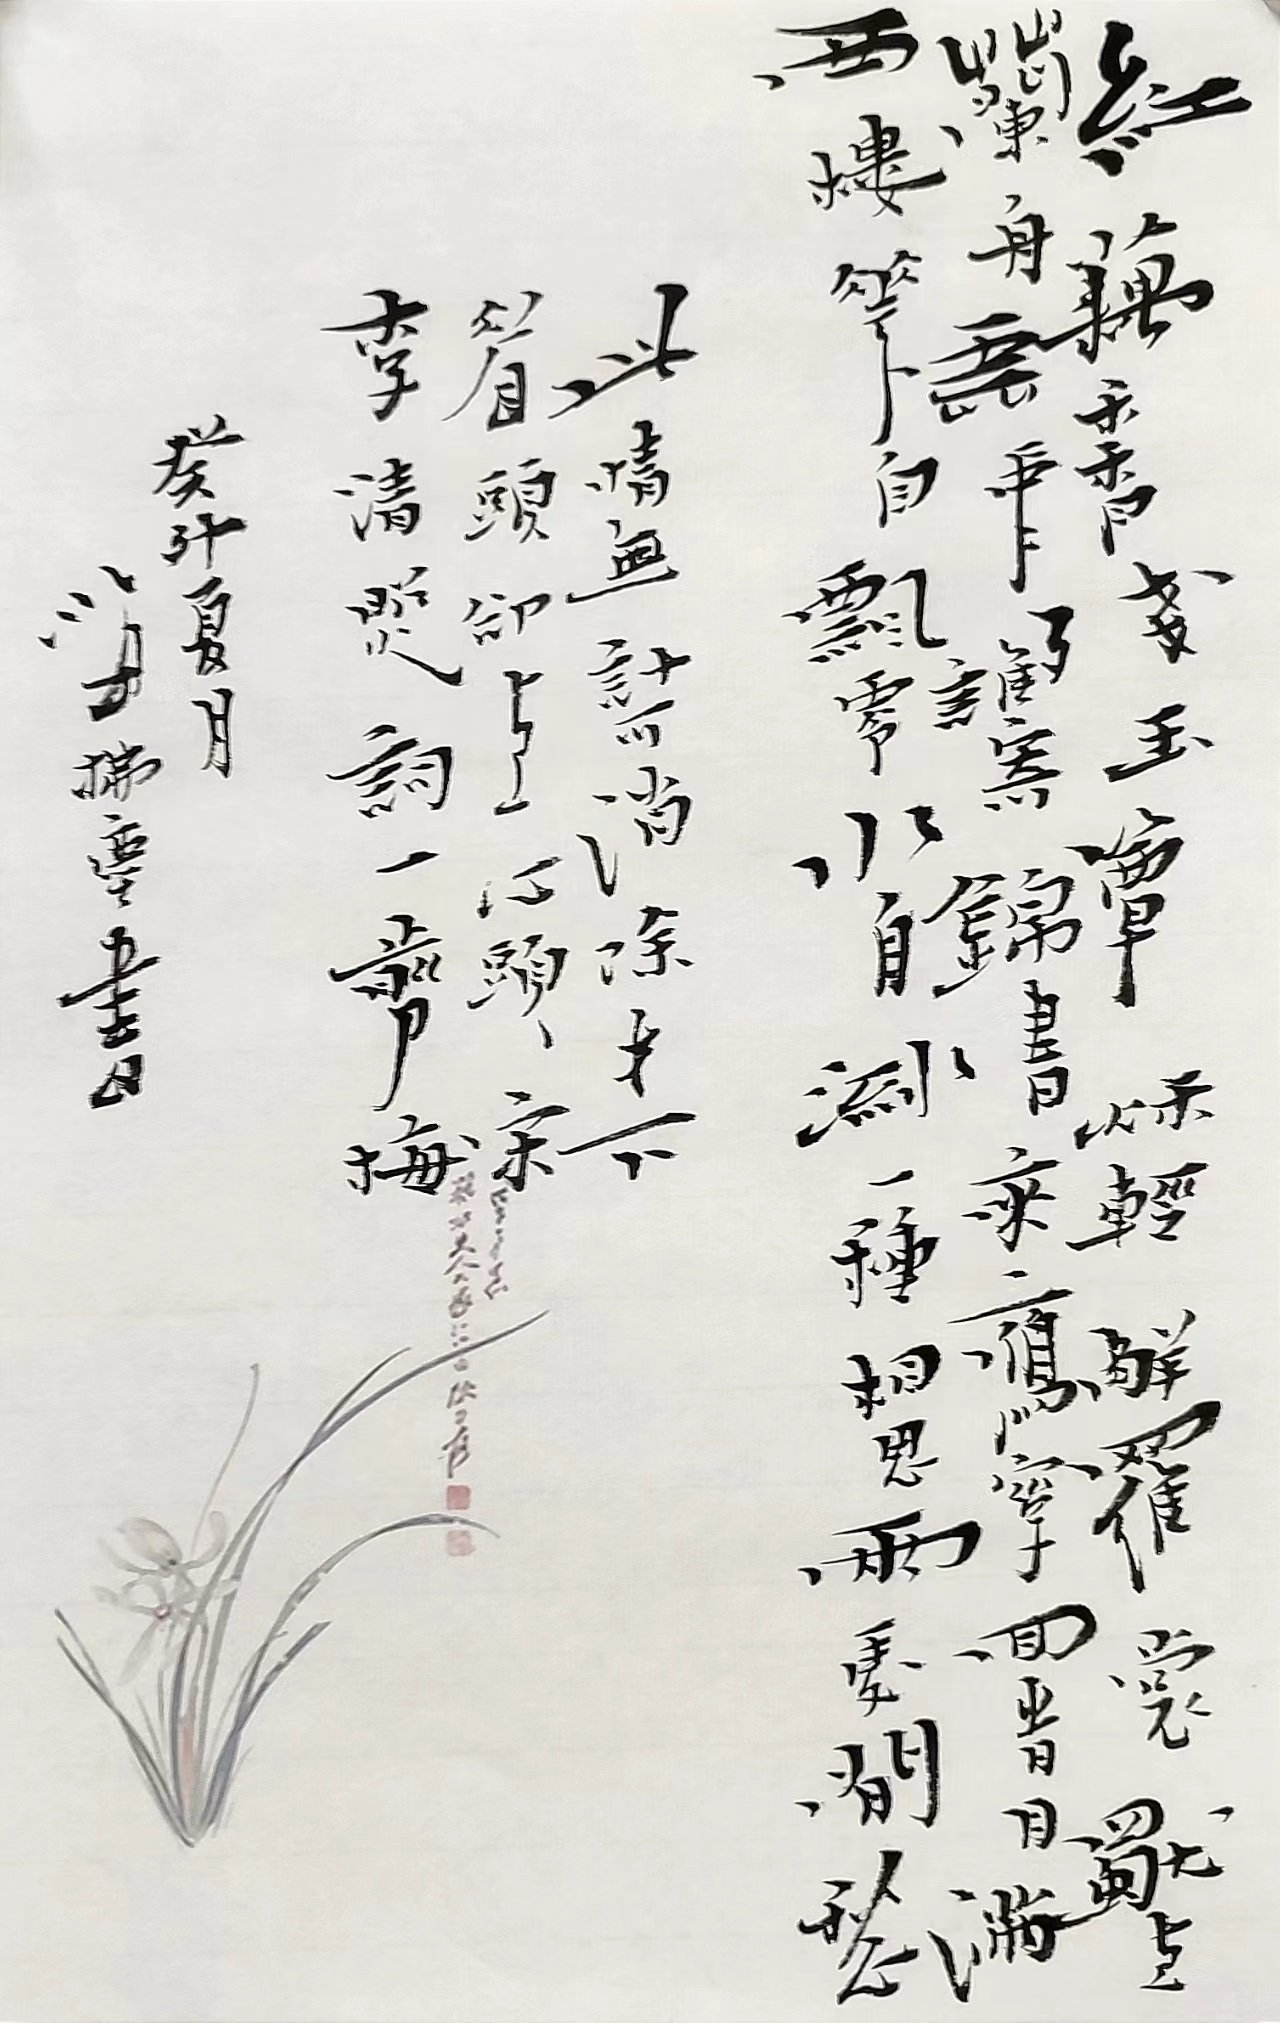 紅藕香殘玉簟秋輕解羅裳獨上
蘭舟雲中誰寄錦書來鴈字回時月滿
西樓華自飄零水自流一種相思兩處閒愁
此情無計可消除才下
眉頭卻上心頭宋
李清照詞一剪梅
癸卯夏月
拂塵書